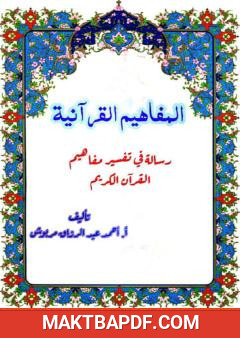 المفاهيم القرآنية
رسالة في تفسير مفاهيم
القرآن الكريم
تأليف
أ. أحمد عبد الرزاق مريوش
MAKTBAPDF.COM